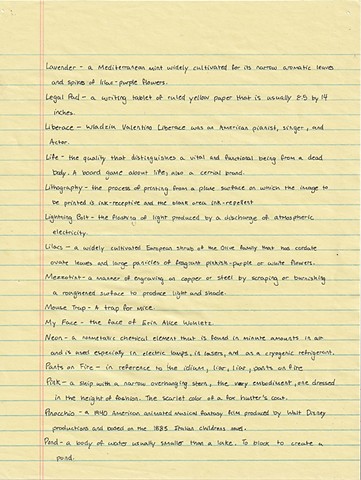 Lavender - a Mediterranean mint widely cultivated for its narrow aromatic leaves
and spikes of lilac-purple flowers.
Legal Pad - a writing tablet of ruled yellow paper that is usually 8.5 by 14
inches.
Liberace - Wladziu Valentino Liberace was an American pianist, singer, and
Actor.
Life - the quality that distinguishes a vital and functional being from a dead
body. A board game about life; also a cereal brand.
Lithography - the process of printing from a plane surface on which the image to
be printed is ink-receptive and the blank area ink-repellent
Lightning Bolt - the flashing of light produced by a discharge of atmospheric
electricity.
Lilacs - a widely cultivated European shrub of the Olive family that has cordate
ovate leaves and large panicles of fragrant pinkish-purple or white flowers.
Mezzotint - a manner of engraving on copper or steel by scraping or burnishing
a roughened surface to produce light and shade.
Mouse Trap - A trap for mice.
My Face - the face of Erin Alice Wohletz.
Neon - a nonmetallic chemical element that is found in minute amounts in air
and is used especially in electric lamps, in lasers, and as a cryogenic refrigerant.
Pants on Fire - in reference to the idium, liar, liar, pants on fire
Pink - a ship with a narrow overhanging stern, the very embodiment, one dressed
in the height of fashion. The scarlet color of a fox hunter's coat.
Pinocchio - A 1940 American animated musical fantasy film produced by Walt Disney
productions and based on the 1883 Italian childrens novel.
Pond - a body of water usually smaller than a lake. To block to create a
pond.